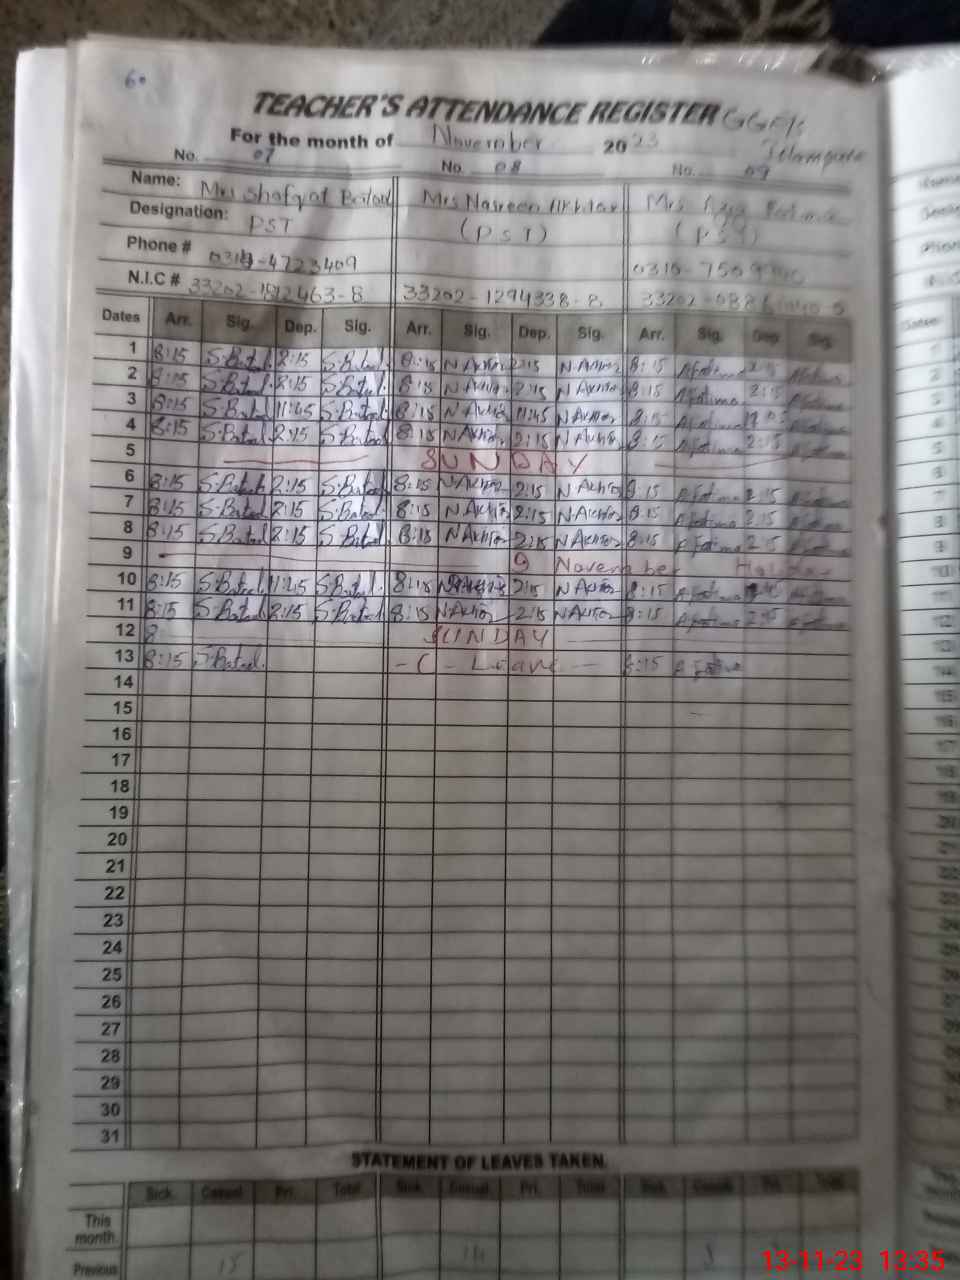 60
TEACHER'S ATTENDANCE REGISTER
For the month of November 2023
No. 07 No. 08 No. 09
Name: Mrs Shafqat Batool Mrs Nasreen Akhtar Mrs Fatima
Designation: PST (PST) (PST)
Phone # 4723409
N.I.C # 33202- 33202-1294338-8 33202-
Dates Arr. Sig. Dep. Sig. Arr. Sig. Dep. Sig. Arr. Sig. Dep. Sig.
1 8:15 S.Batool 2:15 S.Batool 8:15 N Akhtar 2:15 N Akhtar 8:15 A Fatima 2:15 A Fatima
2 8:15 S.Batool 2:15 S.Batool 8:15 N Akhtar 2:15 N Akhtar 8:15 A Fatima 2:15 A Fatima
3 8:15 S.Batool 11:45 S.Batool 8:15 N Akhtar 11:45 N Akhtar 8:15 A Fatima A Fatima
4 8:15 S.Batool 2:15 S.Batool 8:15 N Akhtar 2:15 N Akhtar 8:15 A Fatima 2:15 A Fatima
5 SUNDAY
6 8:15 S.Batool 2:15 S.Batool 8:15 N Akhtar 2:15 N Akhtar 8:15 A Fatima 2:15 A Fatima
7 8:15 S.Batool 2:15 S.Batool 8:15 N Akhtar 2:15 N Akhtar 8:15 A Fatima 2:15 A Fatima
8 8:15 S.Batool 2:15 S.Batool 8:15 N Akhtar 2:15 N Akhtar 8:15 A Fatima 2:15 A Fatima
9 9 November Holiday
10 8:15 S.Batool S.Batool 8:15 N Akhtar 2:15 N Akhtar 8:15 A Fatima A Fatima
11 8:15 S.Batool 2:15 S.Batool 8:15 N Akhtar 2:15 N Akhtar 8:15 A Fatima 2:15 A Fatima
12 8 SUNDAY
13 8:15 S.Batool - C - Leave - 8:15 A Fatima
14
15
16
17
18
19
20
21
22
23
24
25
26
27
28
29
30
31
STATEMENT OF LEAVES TAKEN.
Sick. Casual Pri. Total Sick. Casual Pri. Total Sick. Casual Pri. Total
This month.
Previous 15
13-11-23 13:35